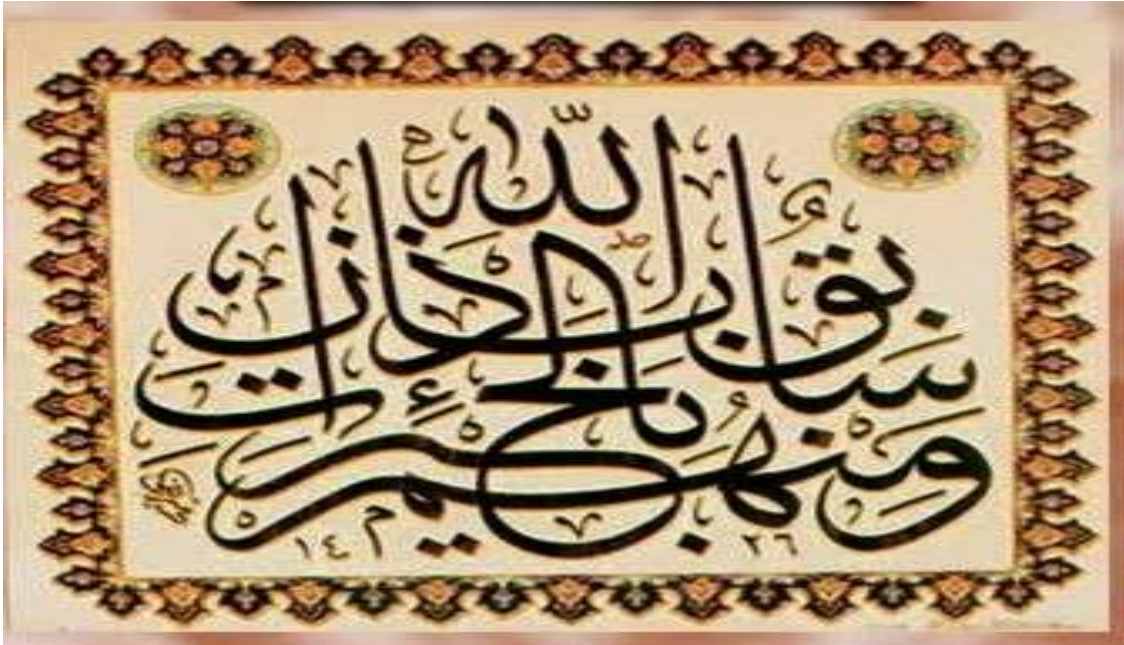 وَمِنْهُمْ سَابِقٌ بِالْخَيْرَاتِ بِإِذْنِ اللَّهِ
١٤ ٢٦